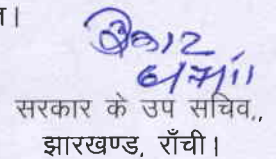 त।
6/7/11
सरकार के उप सचिव,,
झारखण्ड, राँची।